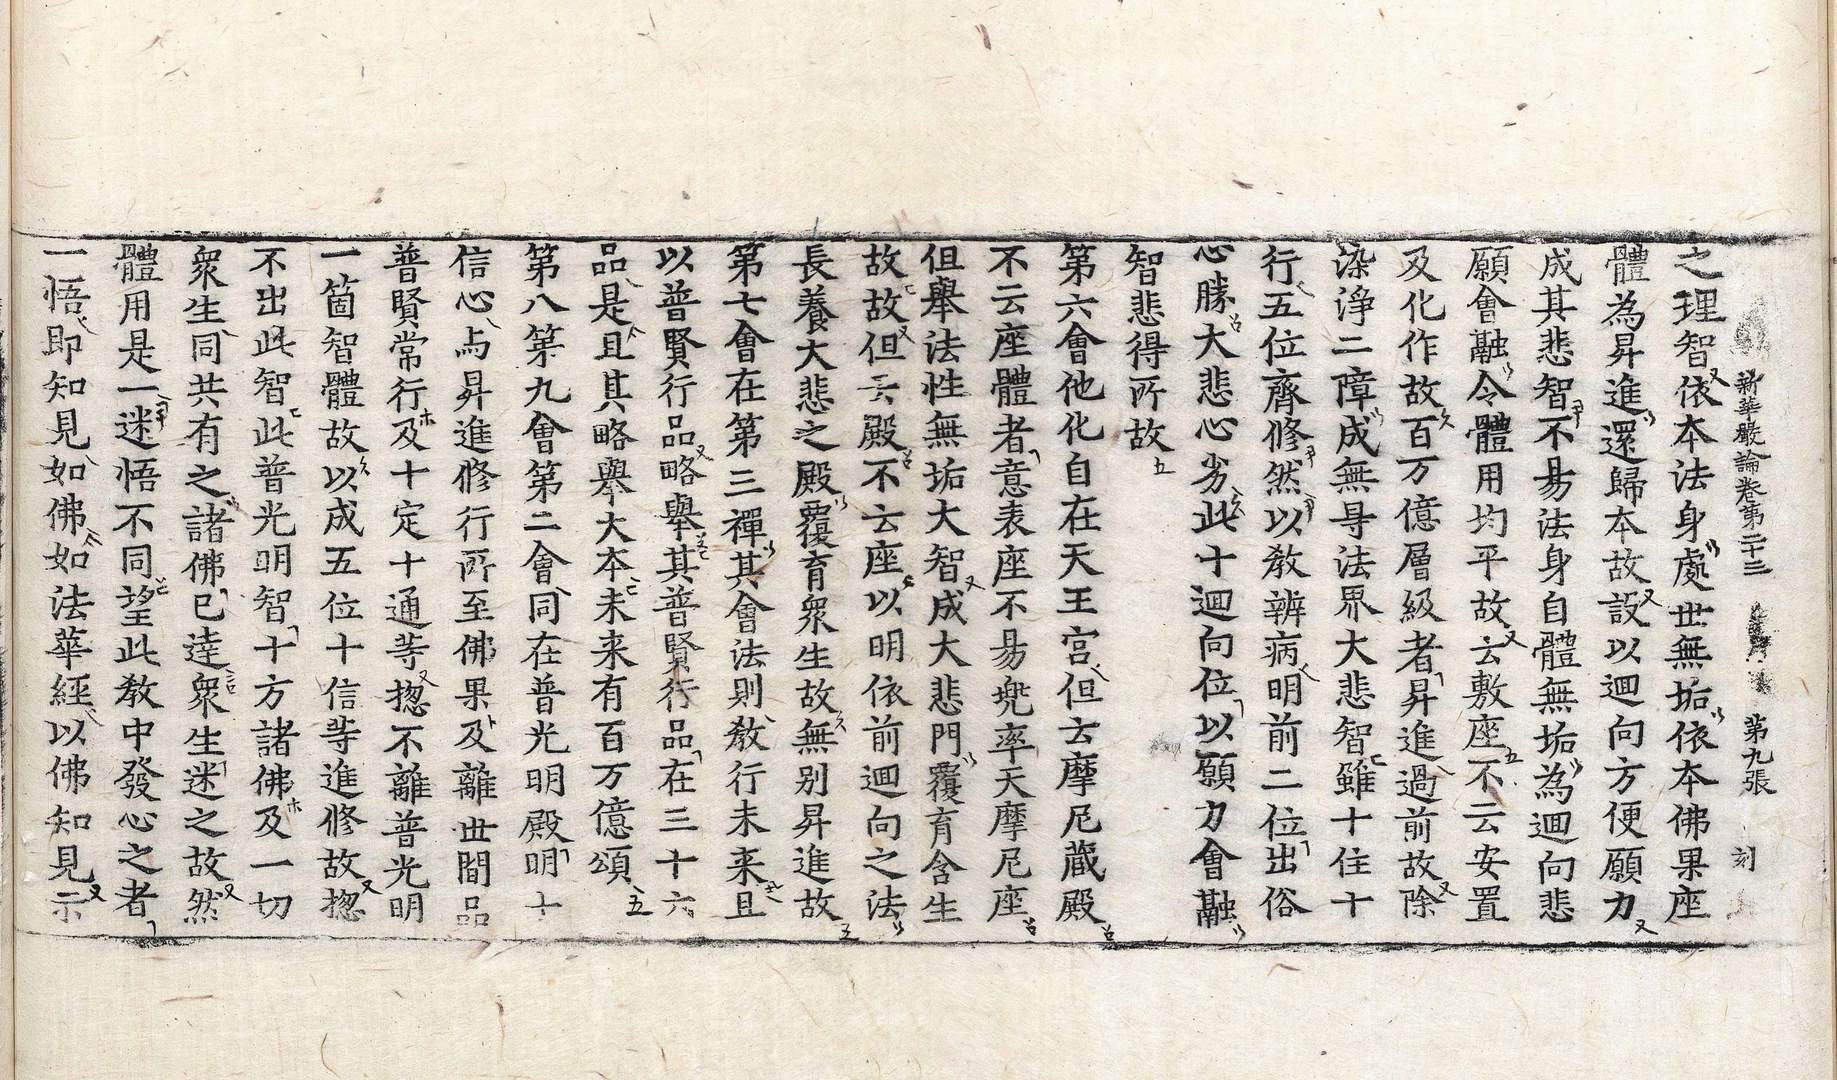 新華嚴論卷第二十三 第九張 刻
之理智依本法身處世無垢依本佛果座
體為昇進還歸本故設以迴向方便願力
成其悲智不易法身自體無垢為迴向悲
願會融令體用均平故云敷座不云安置
及化作故百万億層級者昇進過前故除
染淨二障成無㝵法界大悲智雖十住十
行五位齊修然以教辨病明前二位出俗
心勝大悲心劣此十迴向位以願力會融
智悲得所故
第六會他化自在天王宮但云摩尼藏殿
不云座體者意表座不易兜率天摩尼座
但舉法性無垢大智成大悲門覆育含生
故故但云殿不云座以明依前迴向之法
長養大悲之殿覆育眾生故無別昇進故
第七會在第三禪其會法則教行未来且
以普賢行品略舉其普賢行品在三十六
品是且其略舉大本未来有百万億頌
第八第九會第二會同在普光明殿明十
信心与昇進修行所至佛果及離世間品
普賢常行及十定十通等揔不離普光明
一箇智體故以成五位十信等進修故揔
不出此智此普光明智十方諸佛及一切
眾生同共有之諸佛已達眾生迷之故然
體用是一迷悟不同望此教中發心之者
一悟即知見如佛如法華經以佛知見示